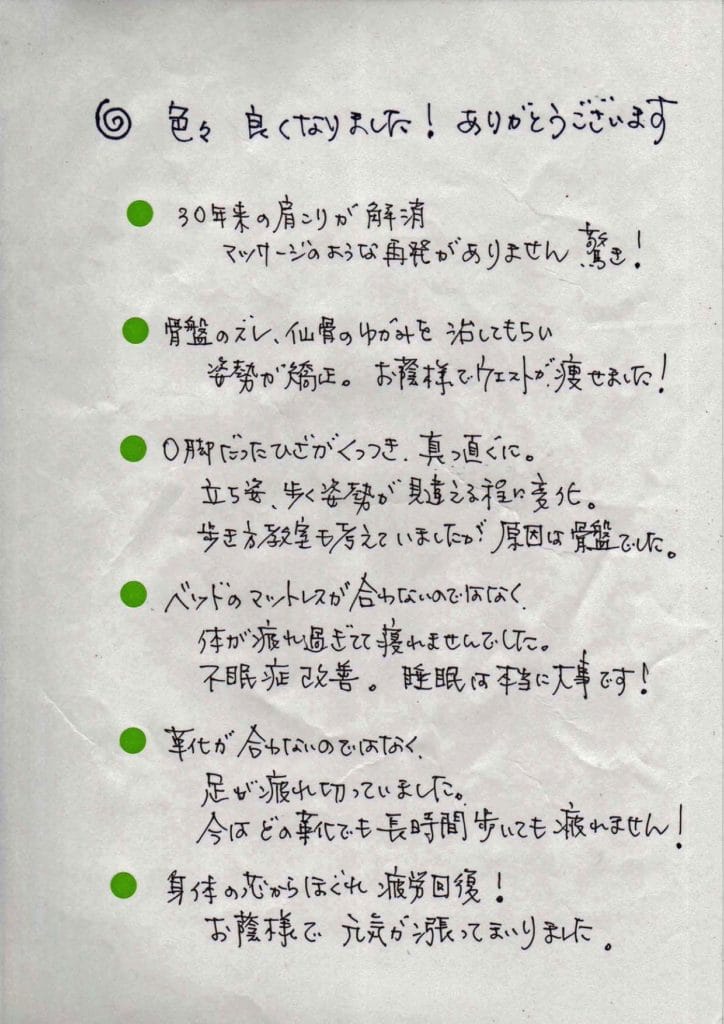 色々 良くなりました! ありがとうございます
30年来の肩こりが解消
マッサージのような再発がありません 驚き!
骨盤のズレ、仙骨のゆがみを 治してもらい
姿勢が矯正。 お蔭様でウエストが痩せました!
O脚だったひざがくっつき、真っ直ぐに。
立ち姿、歩く姿勢が見違える程に変化。
歩き方教室も考えていましたが 原因は骨盤でした。
ベッドのマットレスが合わないのではなく、
体が疲れ過ぎてて寝れませんでした。
不眠症改善。 睡眠は本当に大事です!
革化が合わないのではなく、
足が疲れ切っていました。
今はどの革化でも長時間歩いても疲れません!
身体の芯からほぐれ疲労回復!
お蔭様で 元気が漲ってまいりました。